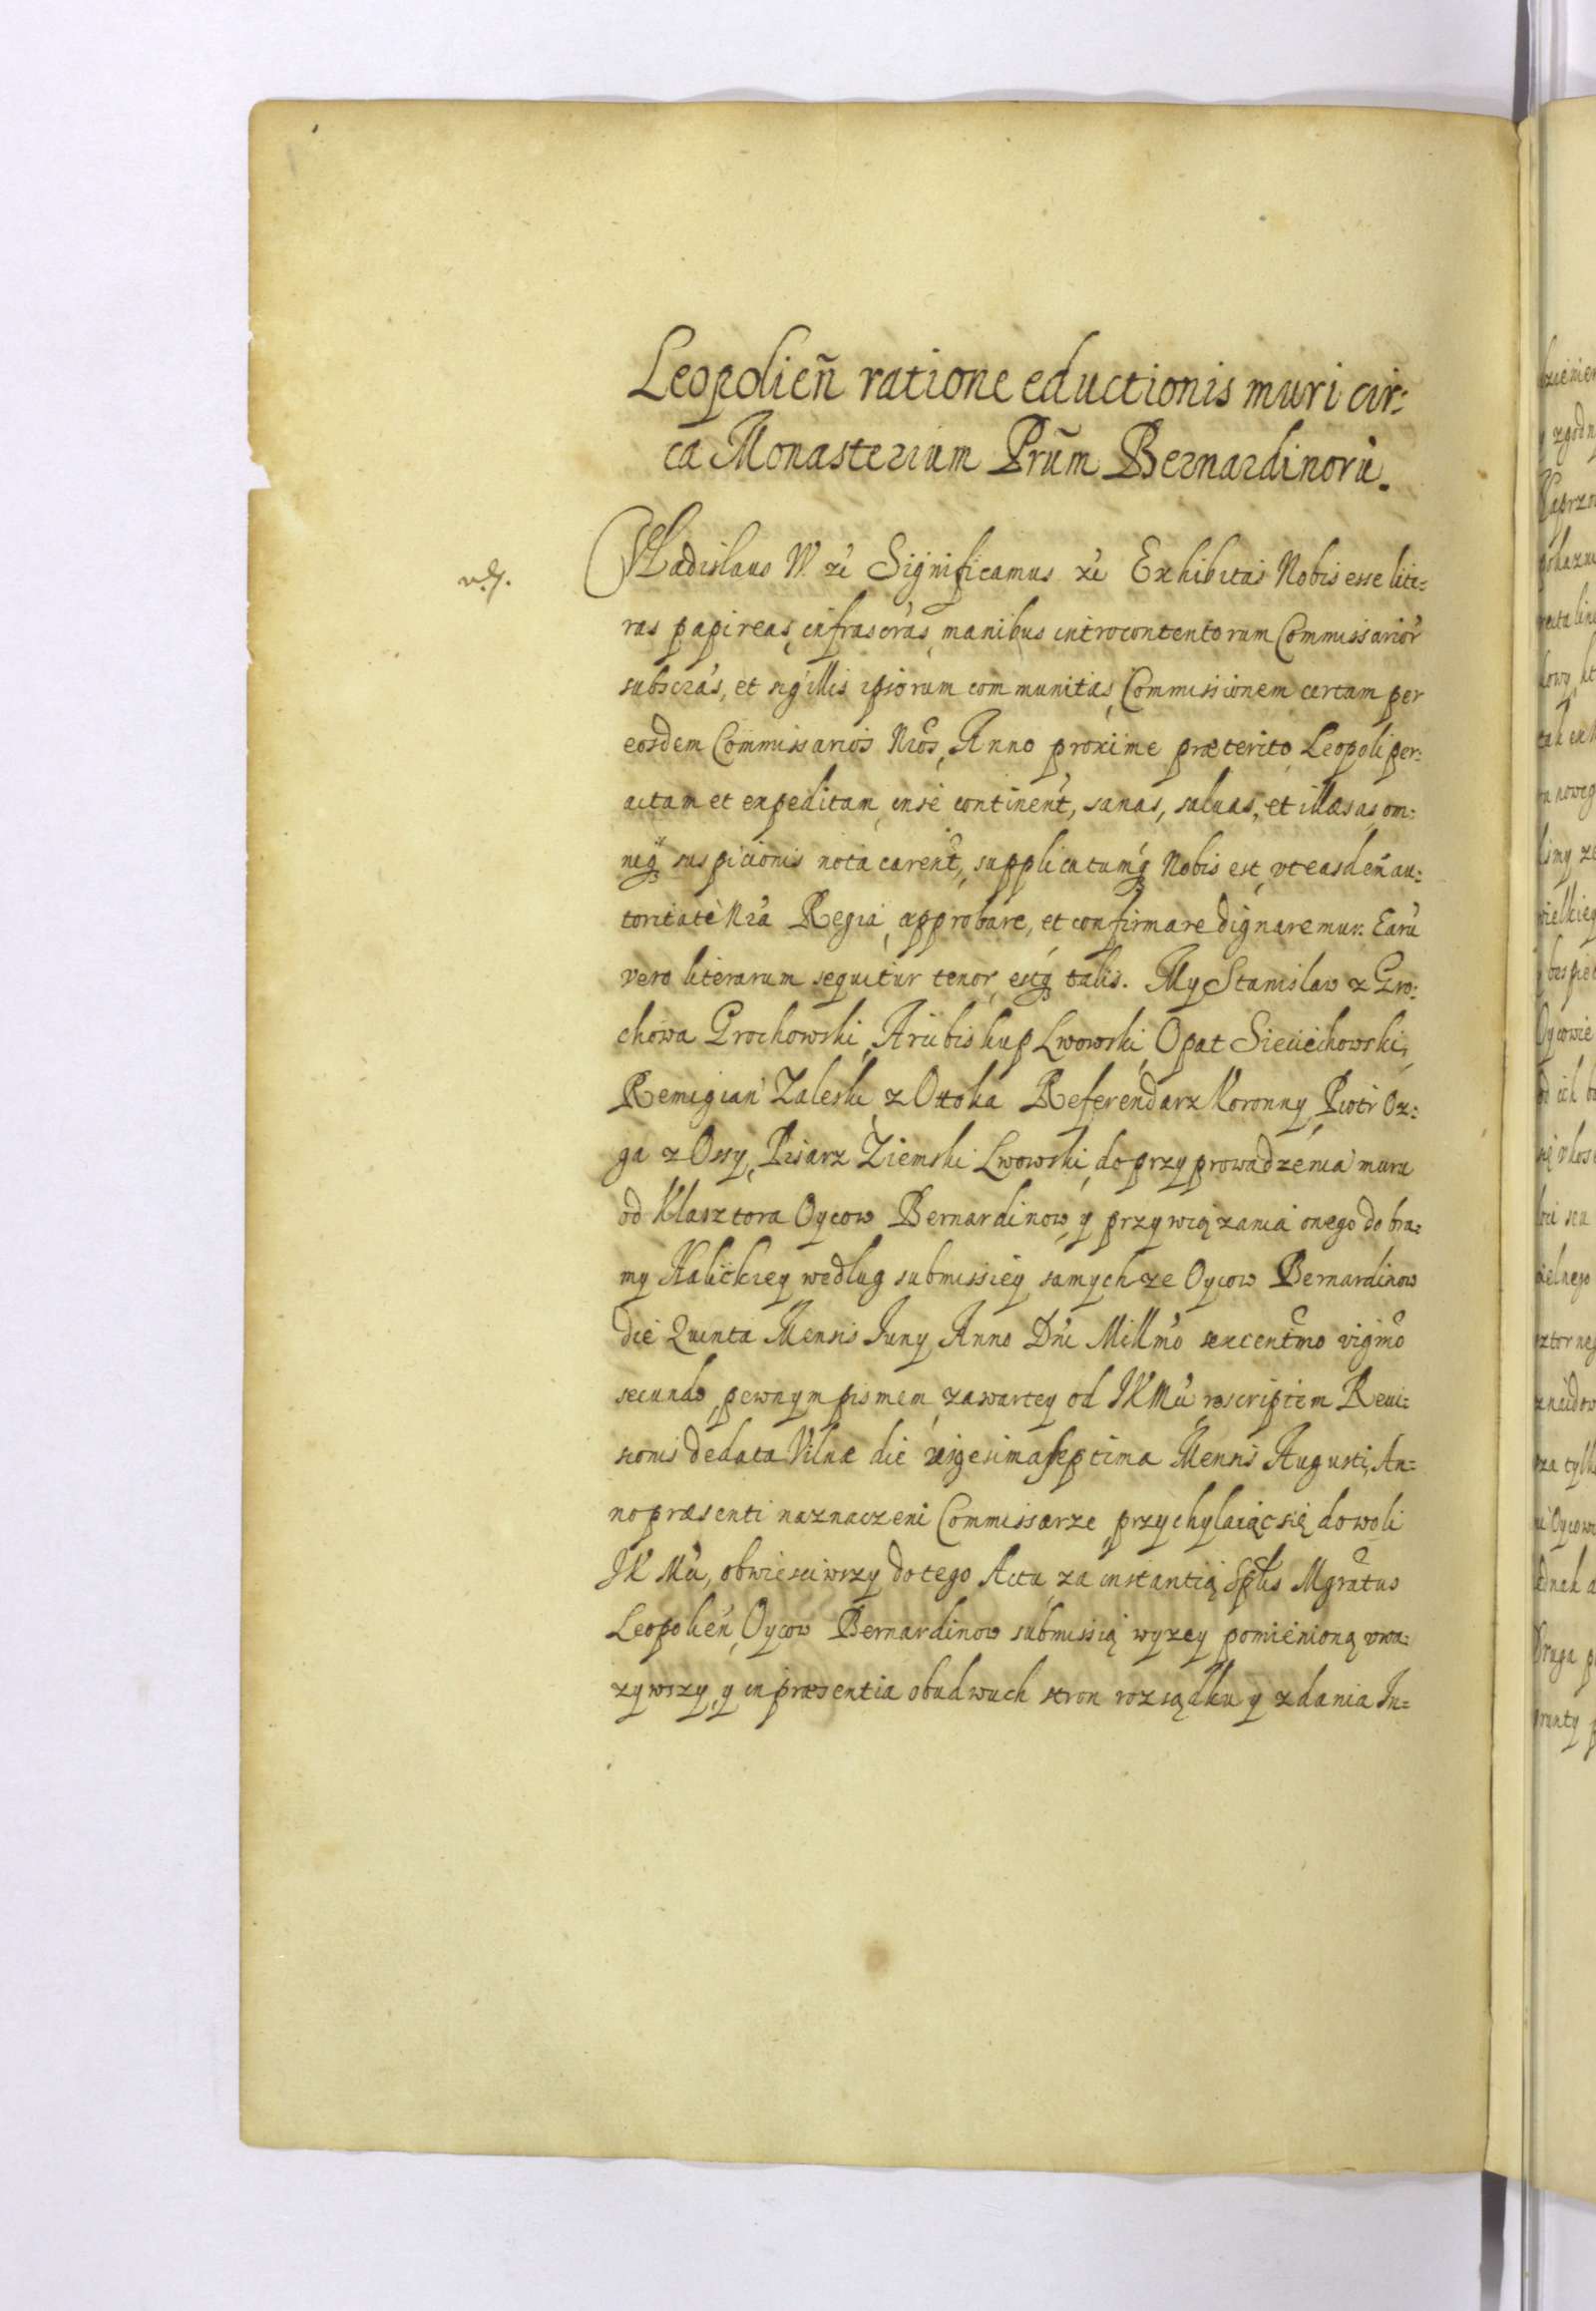 Leopolieñ ratione eductionis muri cir:
ca Monasterium Prũm Bernardinorũ.
Vladislaus IV. etc Significamus etc Exhibitas Nobis esse lite:
ras papireas, infrascrãs, manibus introcontentorum Commissarior̃
subscrãs, et sigillis ipsorum communitas, Commissionem certam per
eosdem Commissarios Nrõs, Anno proxime præterito, Leopoli per:
actam et expeditam, in se continent̃, sanas, saluas, et illæsas, om:
niq3 suspicionis nota carent̃, supplicatumq3 Nobis est, vt easdem̃ au:
toritate Nrã Regia, approbare, et confirmare dignaremur. Earũ
vero literarum sequitur tenor, estq3 talis. My Stanislaw z Gro:
chowa Grochowski, Arcibiskup Lwowski, Opat Sieciechowski,
Remigian Zaleski, z Ottoka Referendarz Koronny, Piotr Oz:
ga z Ossy, Pisarz Ziemski Lwowski, do przyprowadzenia muru
od Klasztora Oycow Bernardinow, y przywiązania onego do bra:
my Halickiey według submissiey samychze Oycow Bernardinow
die Quinta Mensis Iuny Anno Dñi Millmõ sexcentmõ vigmõ
secundo, pewnym pismem, zawartey od IKMũ, rescriptem Reui:
sionis de data Vilnæ die vigesima septima Mensis Augusti, An:
no præsenti naznaczeni Commissarze, przychylaiąc się do woli
IK Mũ, obwiesciwszy do tego Actu, za instantią Splis Mgratus
Leopolień, Oycow Bernardinow submissią wyzey pomienioną vwa:
zywszy, y in præsentia obudwuch stron rozsądku y zdania In: